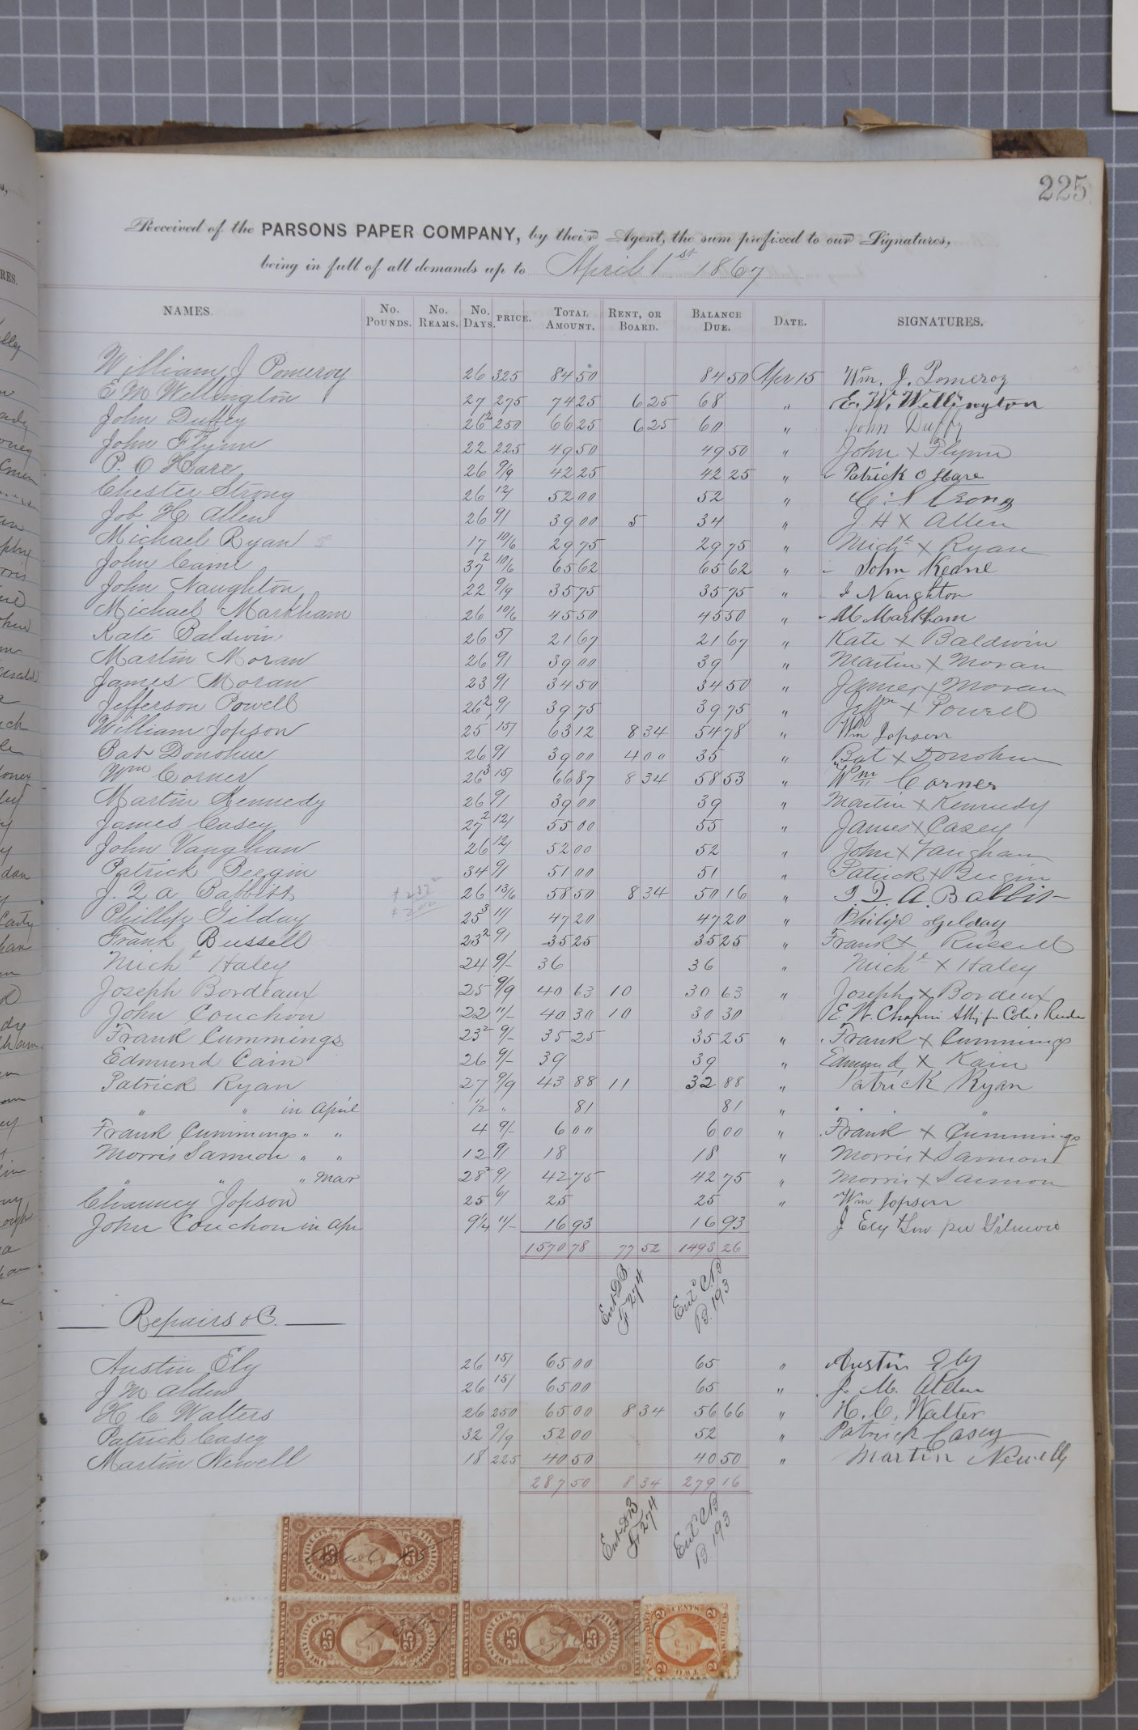 225
Received of the PARSONS PAPER COMPANY, by their Agent, the sum prefixed to our Signatures,
being in full of all demands up to April 1st 1867
NAMES. No. POUNDS. No. REAMS. No. DAYS. PRICE. TOTAL AMOUNT. RENT, OR BOARD. BALANCE DUE. DATE. SIGNATURES.
William J Pomeroy 26 325 84 50 84 50 Apr 15 Wm. J. Pomeroy
E M Wellington 27 275 74 25 6 25 68 " E. W. Wellington
John Duffey 26 2 250 66 25 6 25 60 " John Duffy
John Flynn 22 225 49 50 49 50 " John x Flynn
P. O Hare 26 9/9 42 25 42 25 " Patrick O Hare
Chester Strong 26 12/ 52 00 52 " C. Strong
Job H Allen 26 9/ 39 00 5 34 " J H X Allen
Michael Ryan 17 10/6 29 75 29 75 " Michl X Ryan
John Caine 37 2 10/6 65 62 65 62 " John Keane
John Naughton 22 9/9 35 75 35 75 " J Naughton
Michael Markham 26 10/6 45 50 45 50 " M Markham
Kate Baldwin 26 5/ 21 67 21 67 " Kate X Baldwin
Martin Moran 26 9/ 39 00 39 " Martin X Moran
James Moran 23 9/ 34 50 34 50 " James x Moran
Jefferson Powell 26 2 9/ 39 75 39 75 " Jeffn x Powell
William Jopson 25 1 15/ 63 12 8 34 54 78 " Wm Jopson
Bat Donohue 26 9/ 39 00 4 00 35 " Bat x Donohue
Wm Corner 26 3 15/ 66 87 8 34 58 53 " Wm Corner
Martin Kennedy 26 9/ 39 00 39 " Martin x Kennedy
James Casey 27 2 12/ 55 00 55 " James X Casey
John Vaughan 26 12/ 52 00 52 " John X Vaughan
Patrick Bergin 34 9/ 51 00 51 " Patrick x Bergin
J. Q. A. Babbitt 26 13/6 58 50 8 34 50 16 " J. Q. A. Babbitt
Phillip Gilday 25 3 11/ 47 20 47 20 " Philip Gilday
Frank Bussell 23 2 9/ 35 25 35 25 " Frank x Russell
Michl Haley 24 9/- 36 36 " Michl X Haley
Joseph Bordeaux 25 9/9 40 63 10 30 63 " Joseph X Bordeux
John Couchon 22 11/- 40 30 10 30 30 " E W. Chapin Atty for
Frank Cummings 23 2 9/- 35 25 35 25 " Frank x Cummings
Edmund Cain 26 9/- 39 39 " Edmund x Kain
Patrick Ryan 27 9/9 43 88 11 32 88 " Patrick Ryan
" " in April 1/2 " 81 81 " " "
Frank Cummings " " 4 9/- 6 00 6 00 " Frank X Cummings
Morris Samon " " 12 9/ 18 18 " Morris X Samon
" " " Mar 28 2 9/ 42 75 42 75 " Morris x Samon
Chauncy Jopson 25 6/ 25 25 " Wm Jopson
John Couchon in Apr 9 1/4 11/- 16 93 16 93 J Ely
1570 78 77 52 1493 26
Ent DB F 274 Entd CB P. 193
Repairs &C.
Austin Ely 26 15/ 65 00 65 " Austin Ely
J M Alden 26 15/ 65 00 65 " J. M. Alden
H C Walters 26 250 65 00 8 34 56 66 " H. C. Walter
Patrick Casey 32 9/9 52 00 52 " Patrick Casey
Martin Newell 18 225 40 50 40 50 " Martin Newell
287 50 8 34 279 16
Ent DB F 274 Entd CB P 193
25 25
25 25 25 25 2 CENTS 2